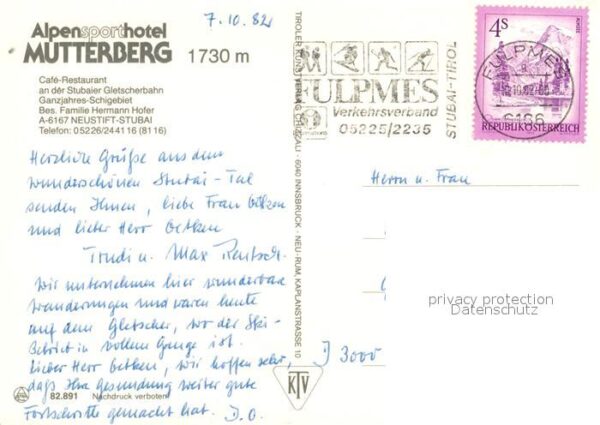 7.10.82
Alpensporthotel
MUTTERBERG 1730 m
Café-Restaurant
an der Stubaier Gletscherbahn
Ganzjahres-Schigebiet
Bes. Familie Hermann Hofer
A-6167 NEUSTIFT-STUBAI
Telefon: 05226/244116 (8116)
Herzliche Grüße aus dem
wunderschönen Stubai-Tal
senden Ihnen, liebe Frau
und lieber Herr
Trudi u. Max
Wir unternehmen hier wunderbare
Wanderungen und waren heute
auf dem Gletscher, wo der Ski-
Betrieb in vollem Gange ist.
Lieber Herr wir hoffen sehr,
daß Ihre Gesundung weiter gute
Fortschritte gemacht hat. D.O.
82.891 Nachdruck verboten
TIROLER KUNSTVERLAG CHIZZALI · 6040 INNSBRUCK - NEU-RUM, KAPLANSTRASSE 10
KTV
FULPMES
Verkehrsverband
05225/2235
STUBAI-TIROL
4S
REPUBLIK ÖSTERREICH
FULPMES
6166
Herrn u. Frau
D 3000
privacy protection
Datenschutz